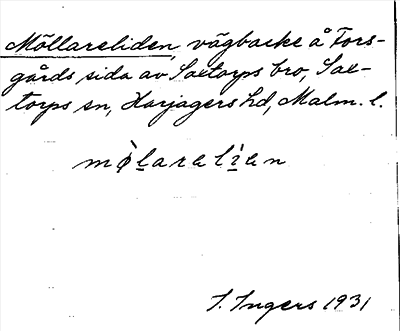 Möllareliden, vägbacke å Fors-
gårds sida av Saxtorps bro, Sax-
torps sn, Harjagers hd, Malm. l.
mø̀laralìan
I. Ingers 1931